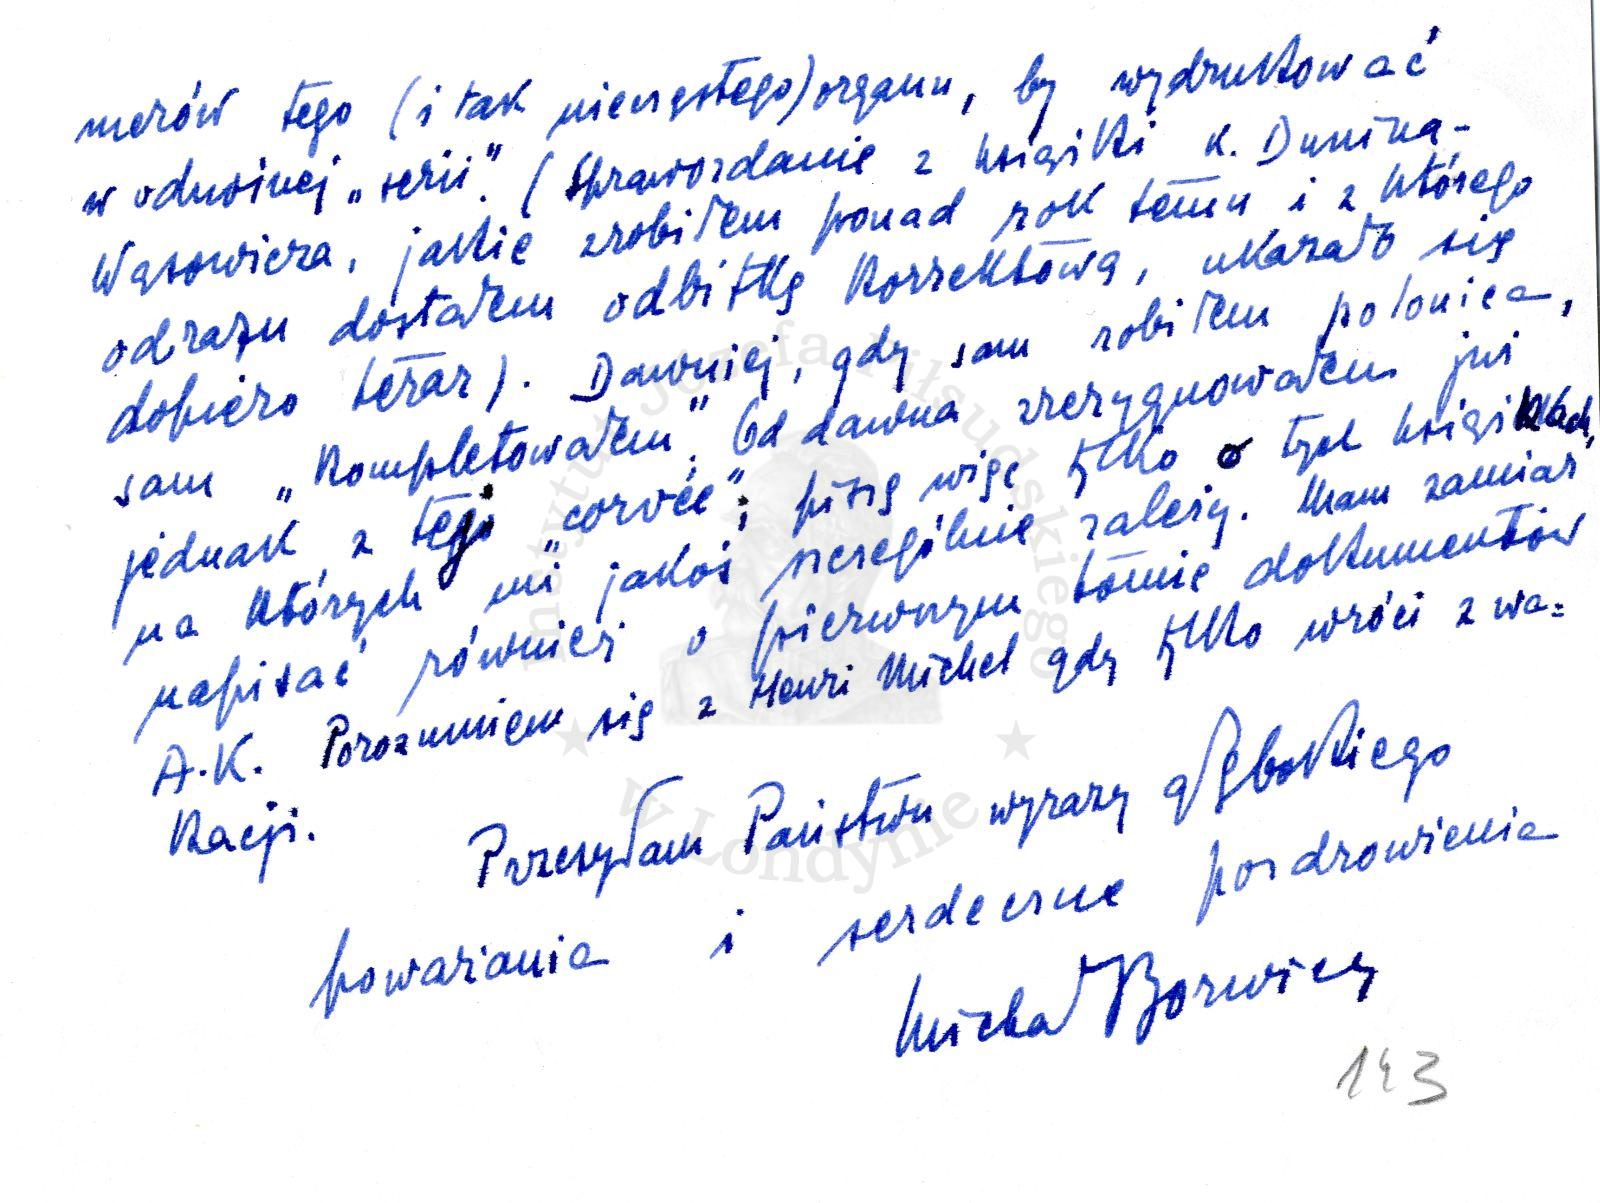 merów tego (i tak nieczęstego) organu, by wydrukować
w odnośnej „serii”. (Sprawozdanie z książki K. Dunina-
Wąsowicza, jakie zrobiłem ponad rok temu i z którego
odrazu dostałem odbitkę korrektową, ukazało się
dopiero teraz). Dawniej, gdy sam robiłem polonica,
sam „kompletowałem”. Od dawna zrezygnowałem już
jednak z tej „corvée”; piszę więc tylko o tych książkach,
na których mi jakoś szczególnie zależy. Mam zamiar
napisać również o pierwszym tomie dokumentów
A.K. Porozumiem się z Henri Michel gdy tylko wróci z wa=
kacji.
Przesyłam Państwu wyrazy głębokiego
poważania i serdeczne pozdrowienia
Michał Borwicz
143
Instytut Józefa Piłsudskiego
w Londynie